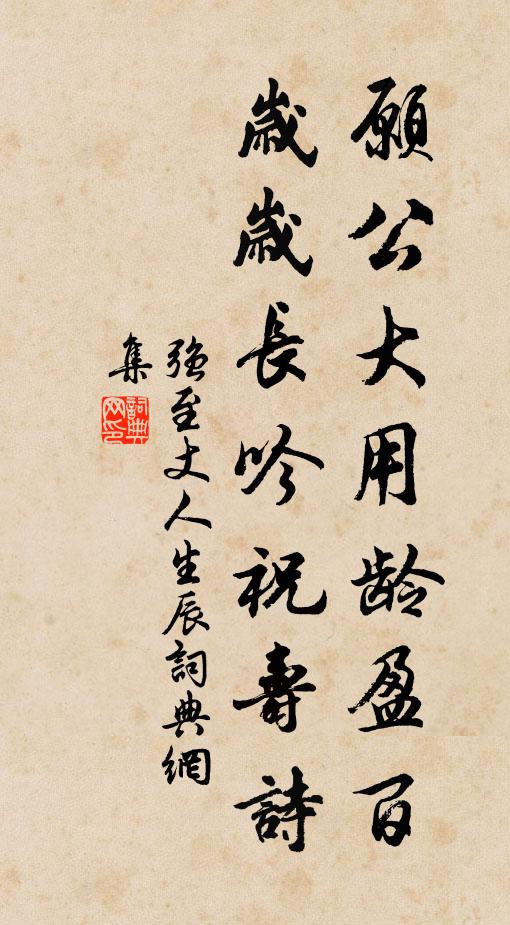 願公大用龄盈百
歲歲長吟祝壽詩
強至丈人生辰詞典網
集
詞典网印